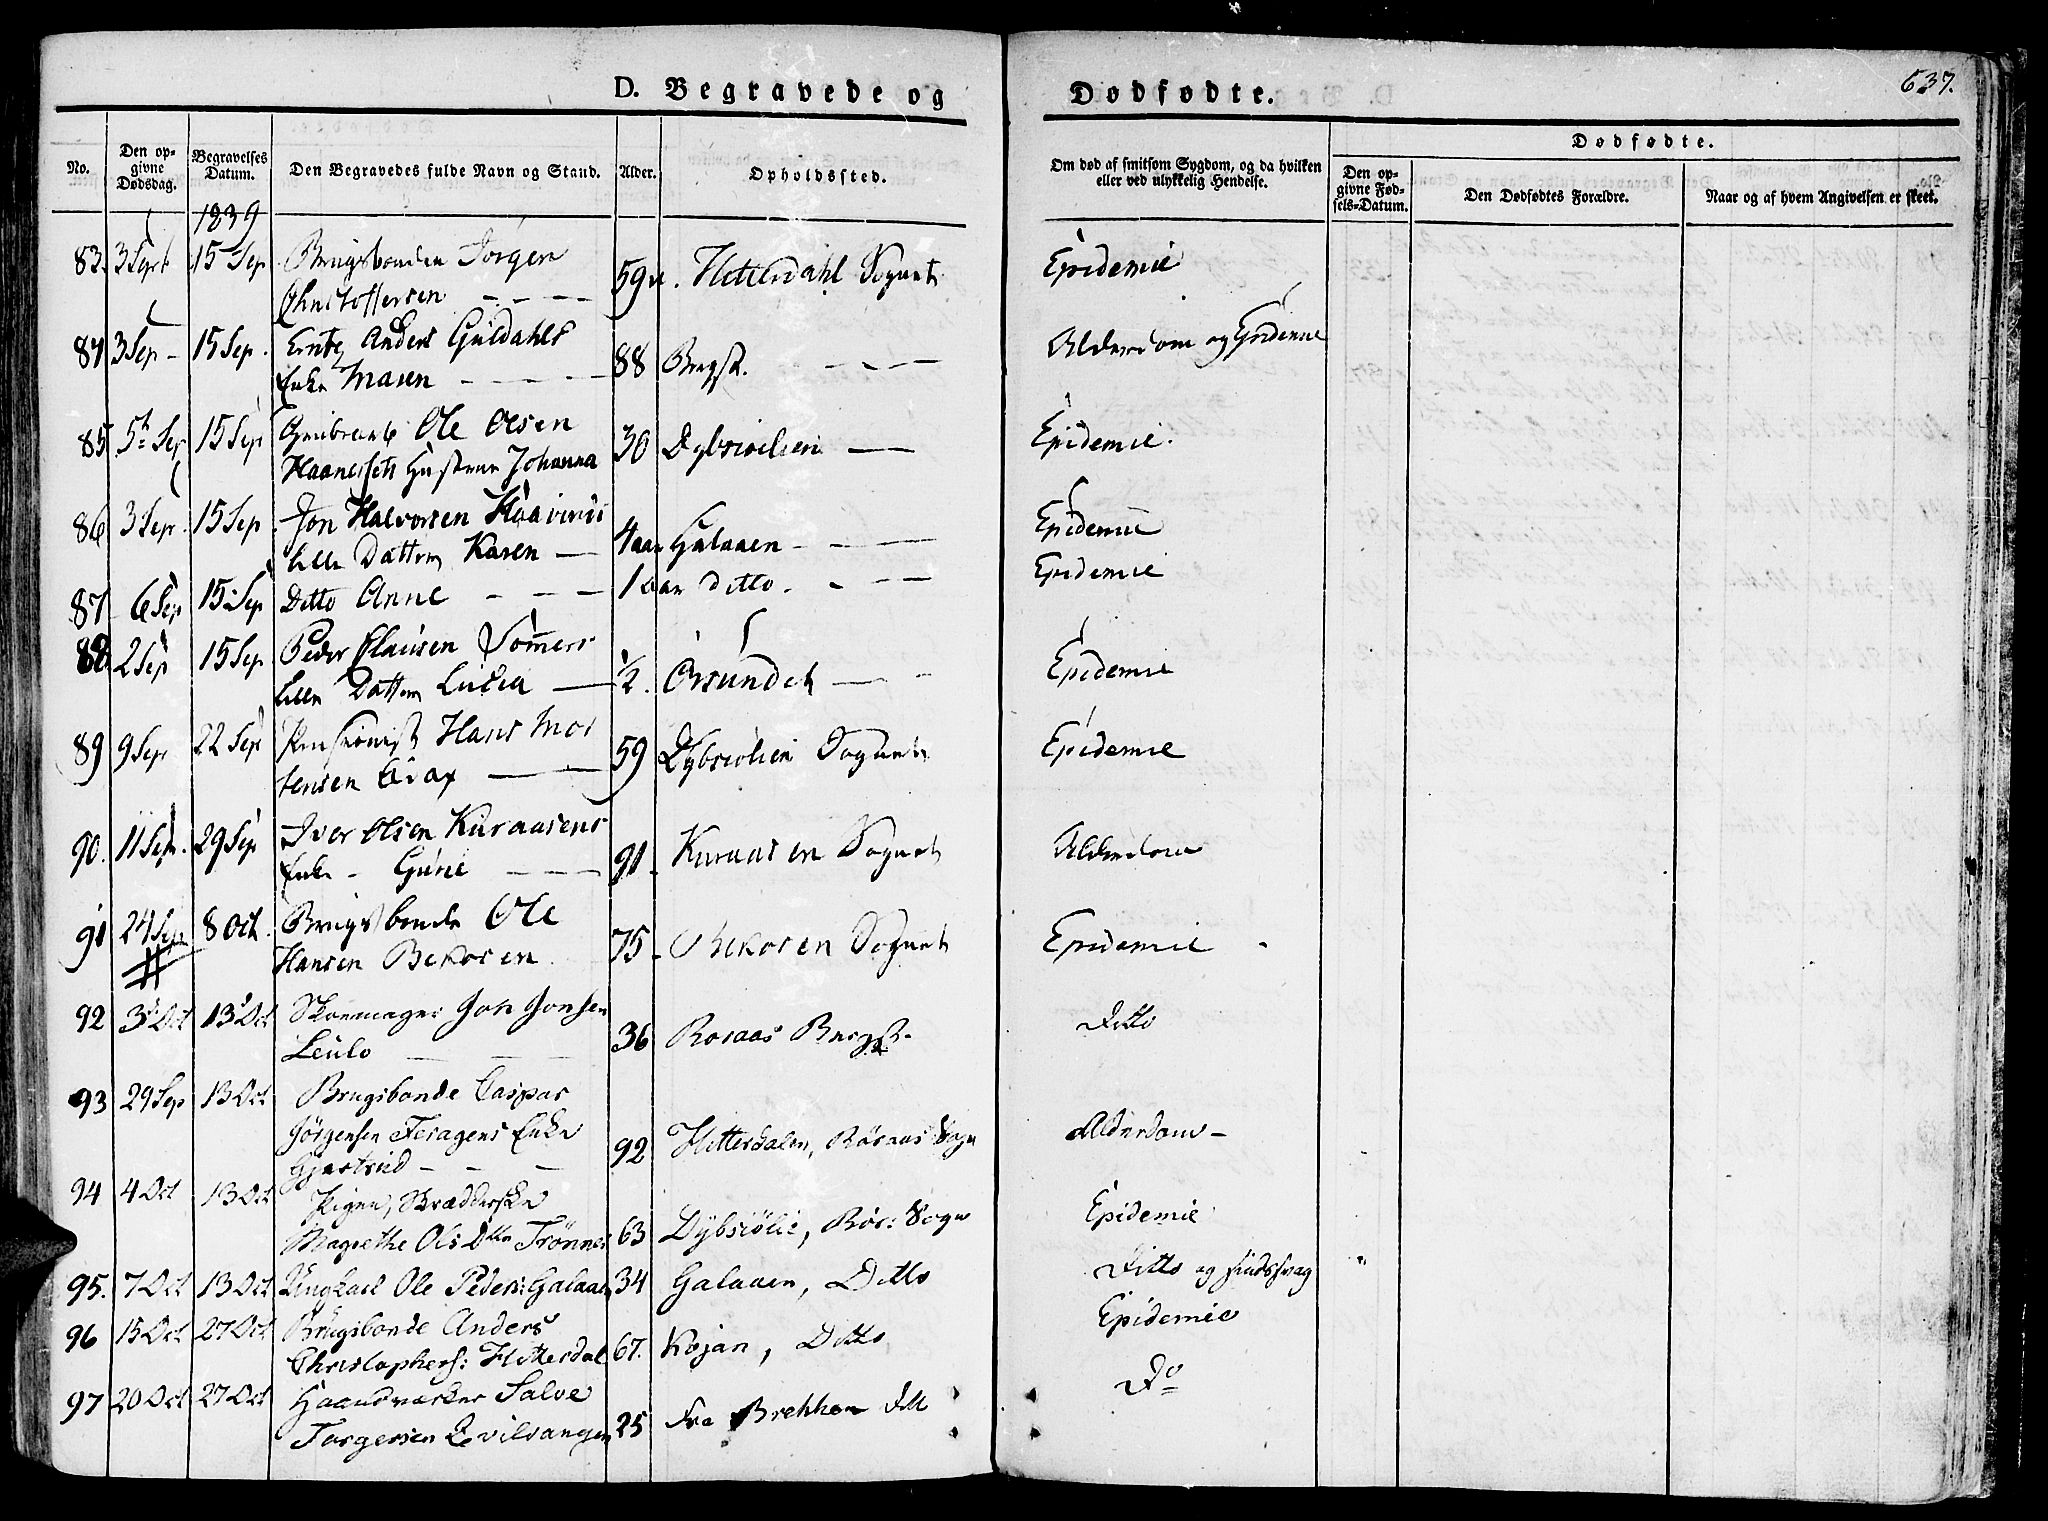 D. Begravede og Dødfødte.
637.
No.
Den opgivne Dødsdag.
Begravelses Datum.
Den Begravedes fulde Navn og Stand.
Alder.
Opholdssted.
Om død af smitsom Sygdom, og da hvilken eller ved ulykkelig Hendelse.
Dødfødte.
Den opgivne Fødsels-Datum.
Den Dødfødtes Forældre.
Naar og af hvem Angivelsen er skeet.
1839
83. 3 Sept 15 Sep Brugsbonden Jörgen
Christoffersen 59 Hitterdahl Sognet Epidemie
84 3 Sep 15 Sep. Anders Guldahls
Enke Maren 88 Bergst. Alderdom og Epidemie
85 5te Sep 15 Sep Ole Olsen
Hustrue Johanna 30 Dybsiølien Epidemie.
86 3 Sep. 15 Sep Jon Halvorsen
lille Datter Karen 4 aar Galaaen Epidemie
87 6 Sep 15 Sep Ditto Anne 1 aar Ditto. Epidemie
88. 2 Sep 15 Sep Peder Clausen Sommers
lille Datter Lucia ½. Örsundet Epidemie
89 9 Sep 22 Sep Pensionist Hans Mor
tensen 59 Dybsiølien Sognet Epidemie
90. 11 Sep. 29 Sep Iver Olsen Kuraasens
Enke Gune 91. Kuraasen Sognet Alderdom
91 24 Sep 8 Oct. Brugsbonde Ole
Hansen Bekosen 75 Bekosen Sognet Epidemie
92 3 Oct 13 Oct Skoemager Jon Jonsen
Leulo 36 Roraas Bergst. Ditto
93 29 Sep 13 Oct Brugsbonde Caspar
Jörgensen Feragens Enke
Gjertrud 92 Hitterdalen, Röraas Sogn Alderdom
94 4 Oct 13 Oct Pigen, Skrædderske
Magrethe Ols Dtr Trønnes 63 Dybsiölie, Rör: Sogn Epidemie
95. 7 Oct 13 Oct Ungkarl Ole Peders: Galaaen 34 Galaaen, Ditto Ditto og sindssvag
96 15 Oct 27 Oct Brugsbonde Anders
Christophers: Hitterdal 67. Kojan, Ditto Epidemie
97 20 Oct 27 Oct Haandværker Salve
Torgersen 25 Fra Brekken Do